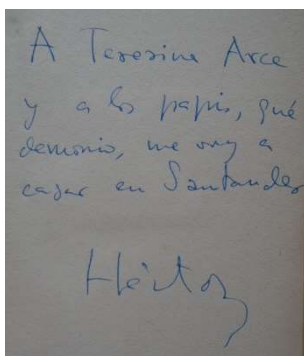 A Teresina Arce
y a los papis, qué
demonio, me voy a
casar en Santander
Héctor